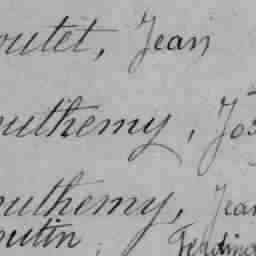 outet, Jean
outhemy, Jos
outhemy, Jean
outin, Ferdina